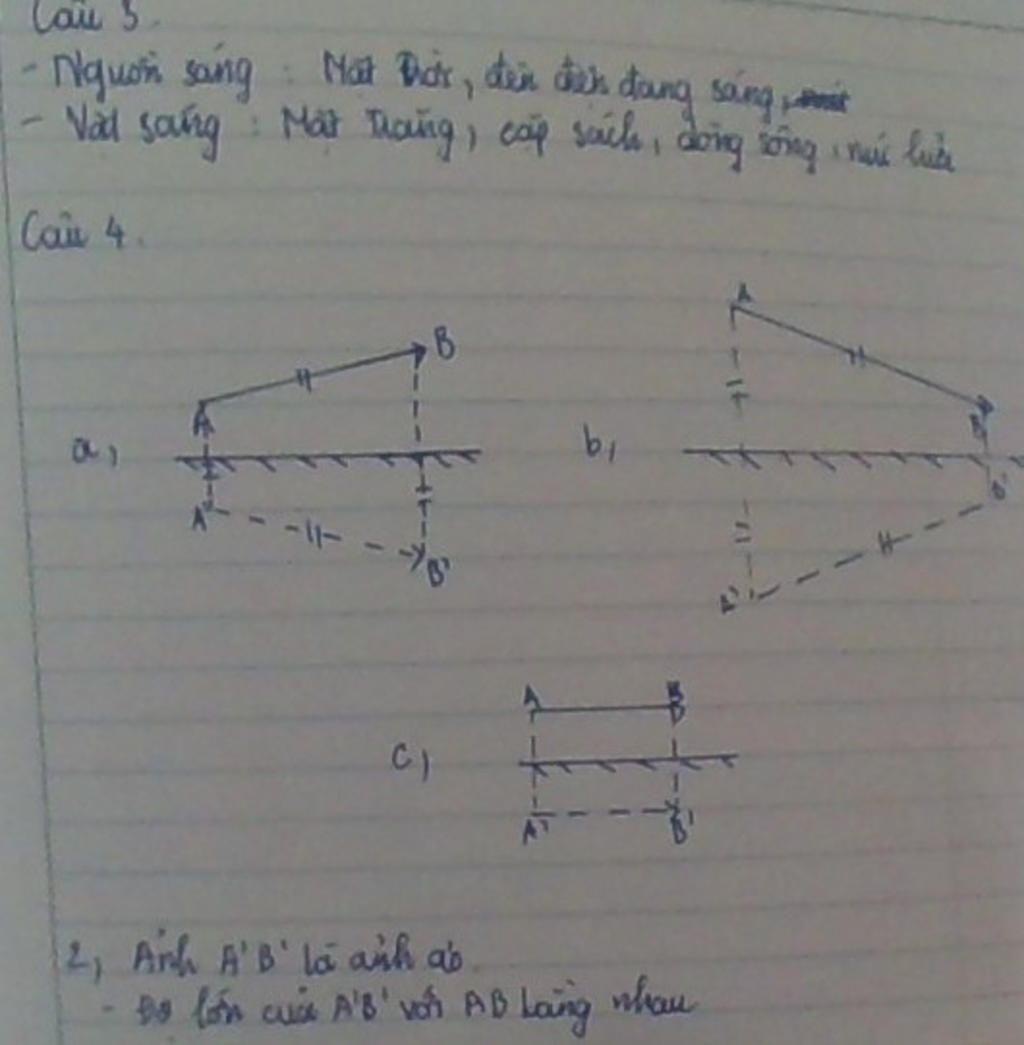 Câu 3.
- Nguồn sáng : Mặt Trời, đèn điện đang sáng,
- Vật sáng : Mặt Trăng, cặp sách, dòng sông, núi lửa
Câu 4.
a,
A
B
A'
B'
b,
A
B
B'
A'
c,
A
B
A'
B'
2, Ảnh A'B' là ảnh ảo
- Độ lớn của A'B' với AB bằng nhau